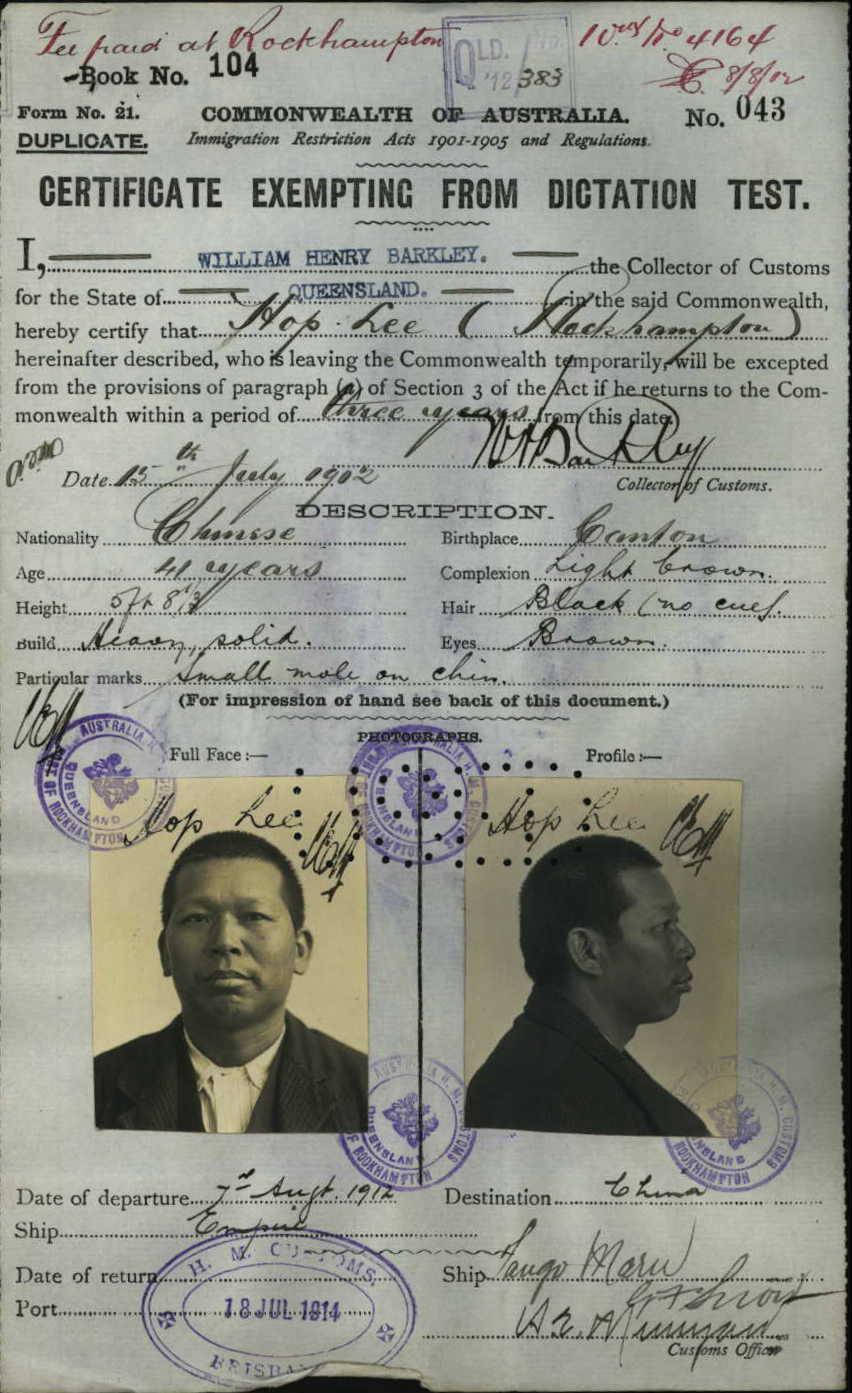 Fee paid at Rockhampton
QLD. '12 383
No 4164
8/8/12
Book No. 104
Form No. 21.
COMMONWEALTH OF AUSTRALIA.
No. 043
DUPLICATE.
Immigration Restriction Acts 1901-1905 and Regulations.
CERTIFICATE EXEMPTING FROM DICTATION TEST.
I, WILLIAM HENRY BARKLEY. the Collector of Customs
for the State of QUEENSLAND. in the said Commonwealth,
hereby certify that Hop Lee (Rockhampton)
hereinafter described, who is leaving the Commonwealth temporarily, will be excepted
from the provisions of paragraph (a) of Section 3 of the Act if he returns to the Com-
monwealth within a period of three years from this date.
WHBarkley
Date 15th July 1912
Collector of Customs.
DESCRIPTION.
Nationality Chinese
Birthplace Canton
Age 41 years
Complexion Light brown.
Height 5ft 8
Hair Black (no cue).
Build Heavy, solid.
Eyes Brown.
Particular marks Small mole on chin.
(For impression of hand see back of this document.)
PHOTOGRAPHS.
Full Face :—
Profile :—
AUSTRALIA H. M. CUSTOMS PORT OF ROCKHAMPTON QUEENSLAND
Hop Lee
Hop Lee
Date of departure 7th Augt. 1912
Destination China
Ship Empire
Date of return
Ship Tango Maru
Port
H. M. CUSTOMS,
18 JUL 1914
BRISBANE
Customs Officer